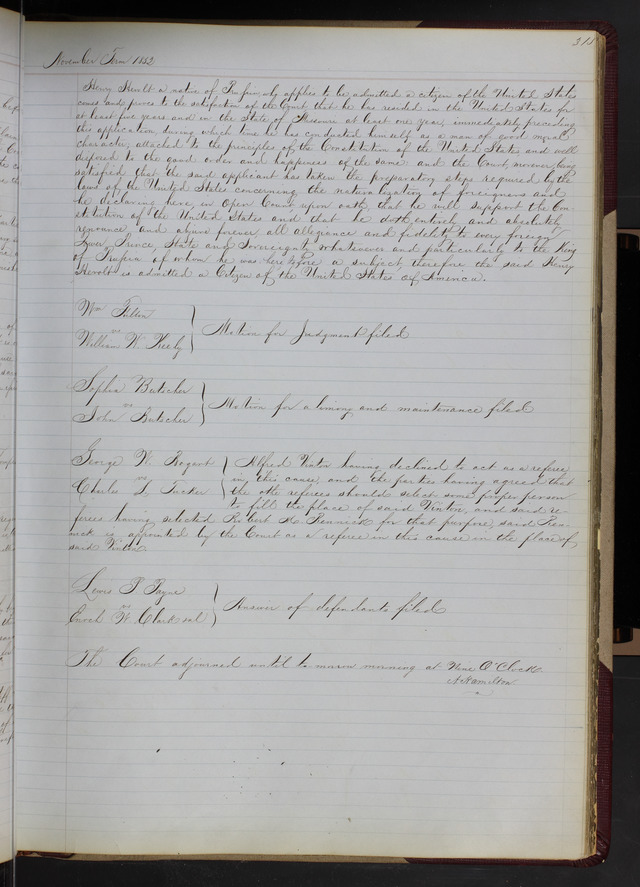 November Term 1852
Henry Hevolt a native of Prussia, who applies to be admitted a citizen of the United States
comes and proves to the satisfaction of the Court that he has resided in the United States for
at least five years and in the State of Missouri at least one year, immediately preceding
this application, during which time he has conducted himself as a man of good moral
character, attached to the principles of the Constitution of the United States, and well
disposed to the good order and happiness of the same: and the Court, moreover, being
satisfied that the said applicant has taken the preparatory steps required by the
laws of the United States concerning the naturalization of foreigners and
he declaring here, in Open Court, upon oath, that he will support the Con-
stitution of the United States and that he doth entirely and absolutely
renounce and abjure forever all allegiance and fidelity to every foreign
Power, Prince, State and Sovereignty whatsoever and particularly to the King
of Prussia of whom he was heretofore a subject, therefore the said Henry
Hevolt is admitted a Citizen of the United States of America.
Wm Fulton
vs
William W. Keely
Motion for Judgment filed
Sophia Butscher
vs
John Butscher
Motion for alimony and maintenance filed
George W. Bogart
vs
Charles L. Tucker
Alfred Vinton having declined to act as a referee
in this cause, and the parties having agreed that
the other referees should select some proper person
to fill the place of said Vinton, and said re-
ferees having selected Robert M. Renneck for that purpose, said Ren-
neck is appointed by the Court as a referee in this cause in the place of
said Vinton.
Lewis P. Payne
vs
Enoch W. Clark et al
Answer of defendants filed
The Court adjourned until to-morrow morning at Nine O'Clock
A Hamilton